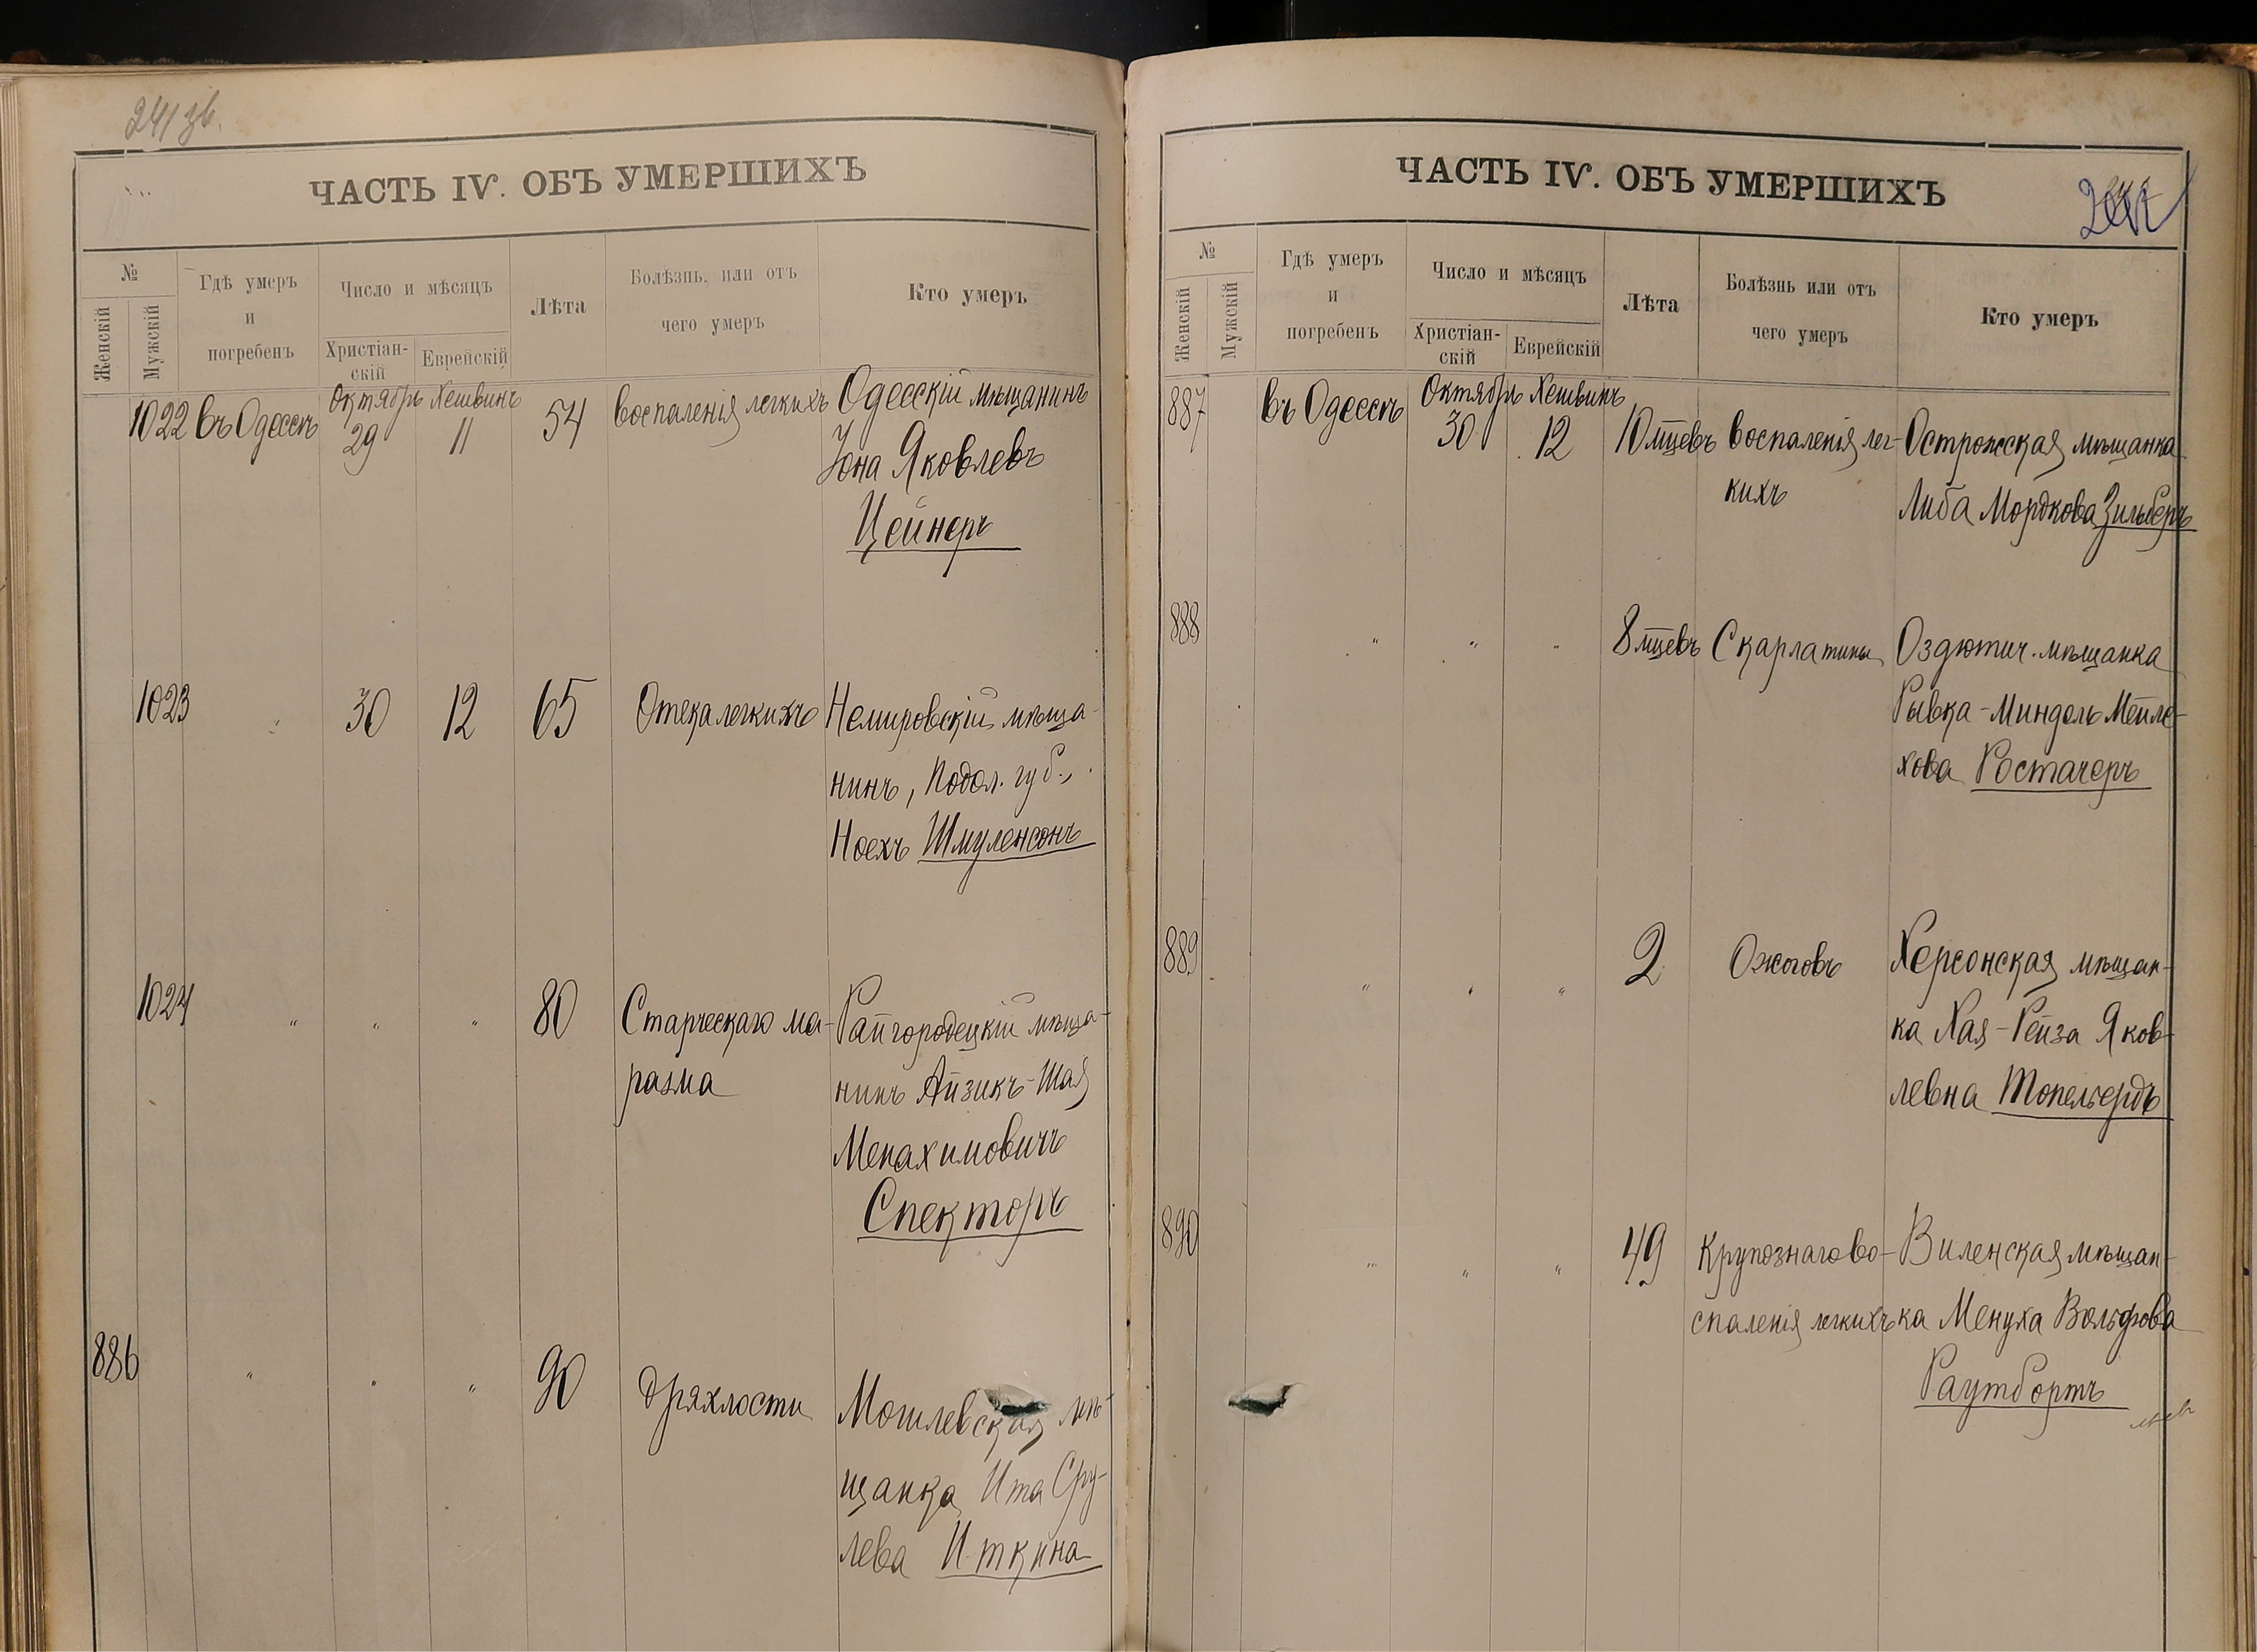 241 зв.
ЧАСТЬ IV. ОБЪ УМЕРШИХЪ
№
Женскій
Мужскій
Гдѣ умеръ
и
погребенъ
Число и мѣсяцъ
Христіан-
скій
Еврейскій
Лѣта
Болѣзнь, или отъ
чего умеръ
Кто умеръ
Октябрь Хешвинъ
1022 въ Одессѣ 29 11 54 воспаленія легкихъ Одесскій мѣщанинъ
Іона Яковлевъ
Цейнеръ
1023 " 30 12 65 Отека легкихъ Немировскій мѣща-
нинъ, Подол. губ.,
Ноехъ Шмуленсонъ
1024 " " " 80 Старческаго ма- Райгородецкій мѣща-
разма нинъ Айзикъ-Шая
Менахимовичъ
Спекторъ
886 " " " 90 Дряхлости Могилевская мѣ-
щанка Ита Сру-
лева Иткина
ЧАСТЬ IV. ОБЪ УМЕРШИХЪ
№
Женскій
Мужскій
Гдѣ умеръ
и
погребенъ
Число и мѣсяцъ
Христіан-
скій
Еврейскій
Лѣта
Болѣзнь или отъ
чего умеръ
Кто умеръ
Октябрь Хешвинъ
887 въ Одессѣ 30 12 10 мцевъ воспаленія лег- Острожская мѣщанка
кихъ Либа Мордкова Зильберъ
888 " " " 8 мцевъ Скарлатины Оздютич. мѣщанка
Рывка-Миндель Мейле-
хова Ростачеръ
889 " " " 2 Ожоговъ Херсонская мѣщан-
ка Хая-Рейза Яков-
левна Топельердъ
890 " " " 49 Крупознаго во- Виленская мѣщан-
спаленія легкихъ ка Менуха Вольфова
Раутбортъ